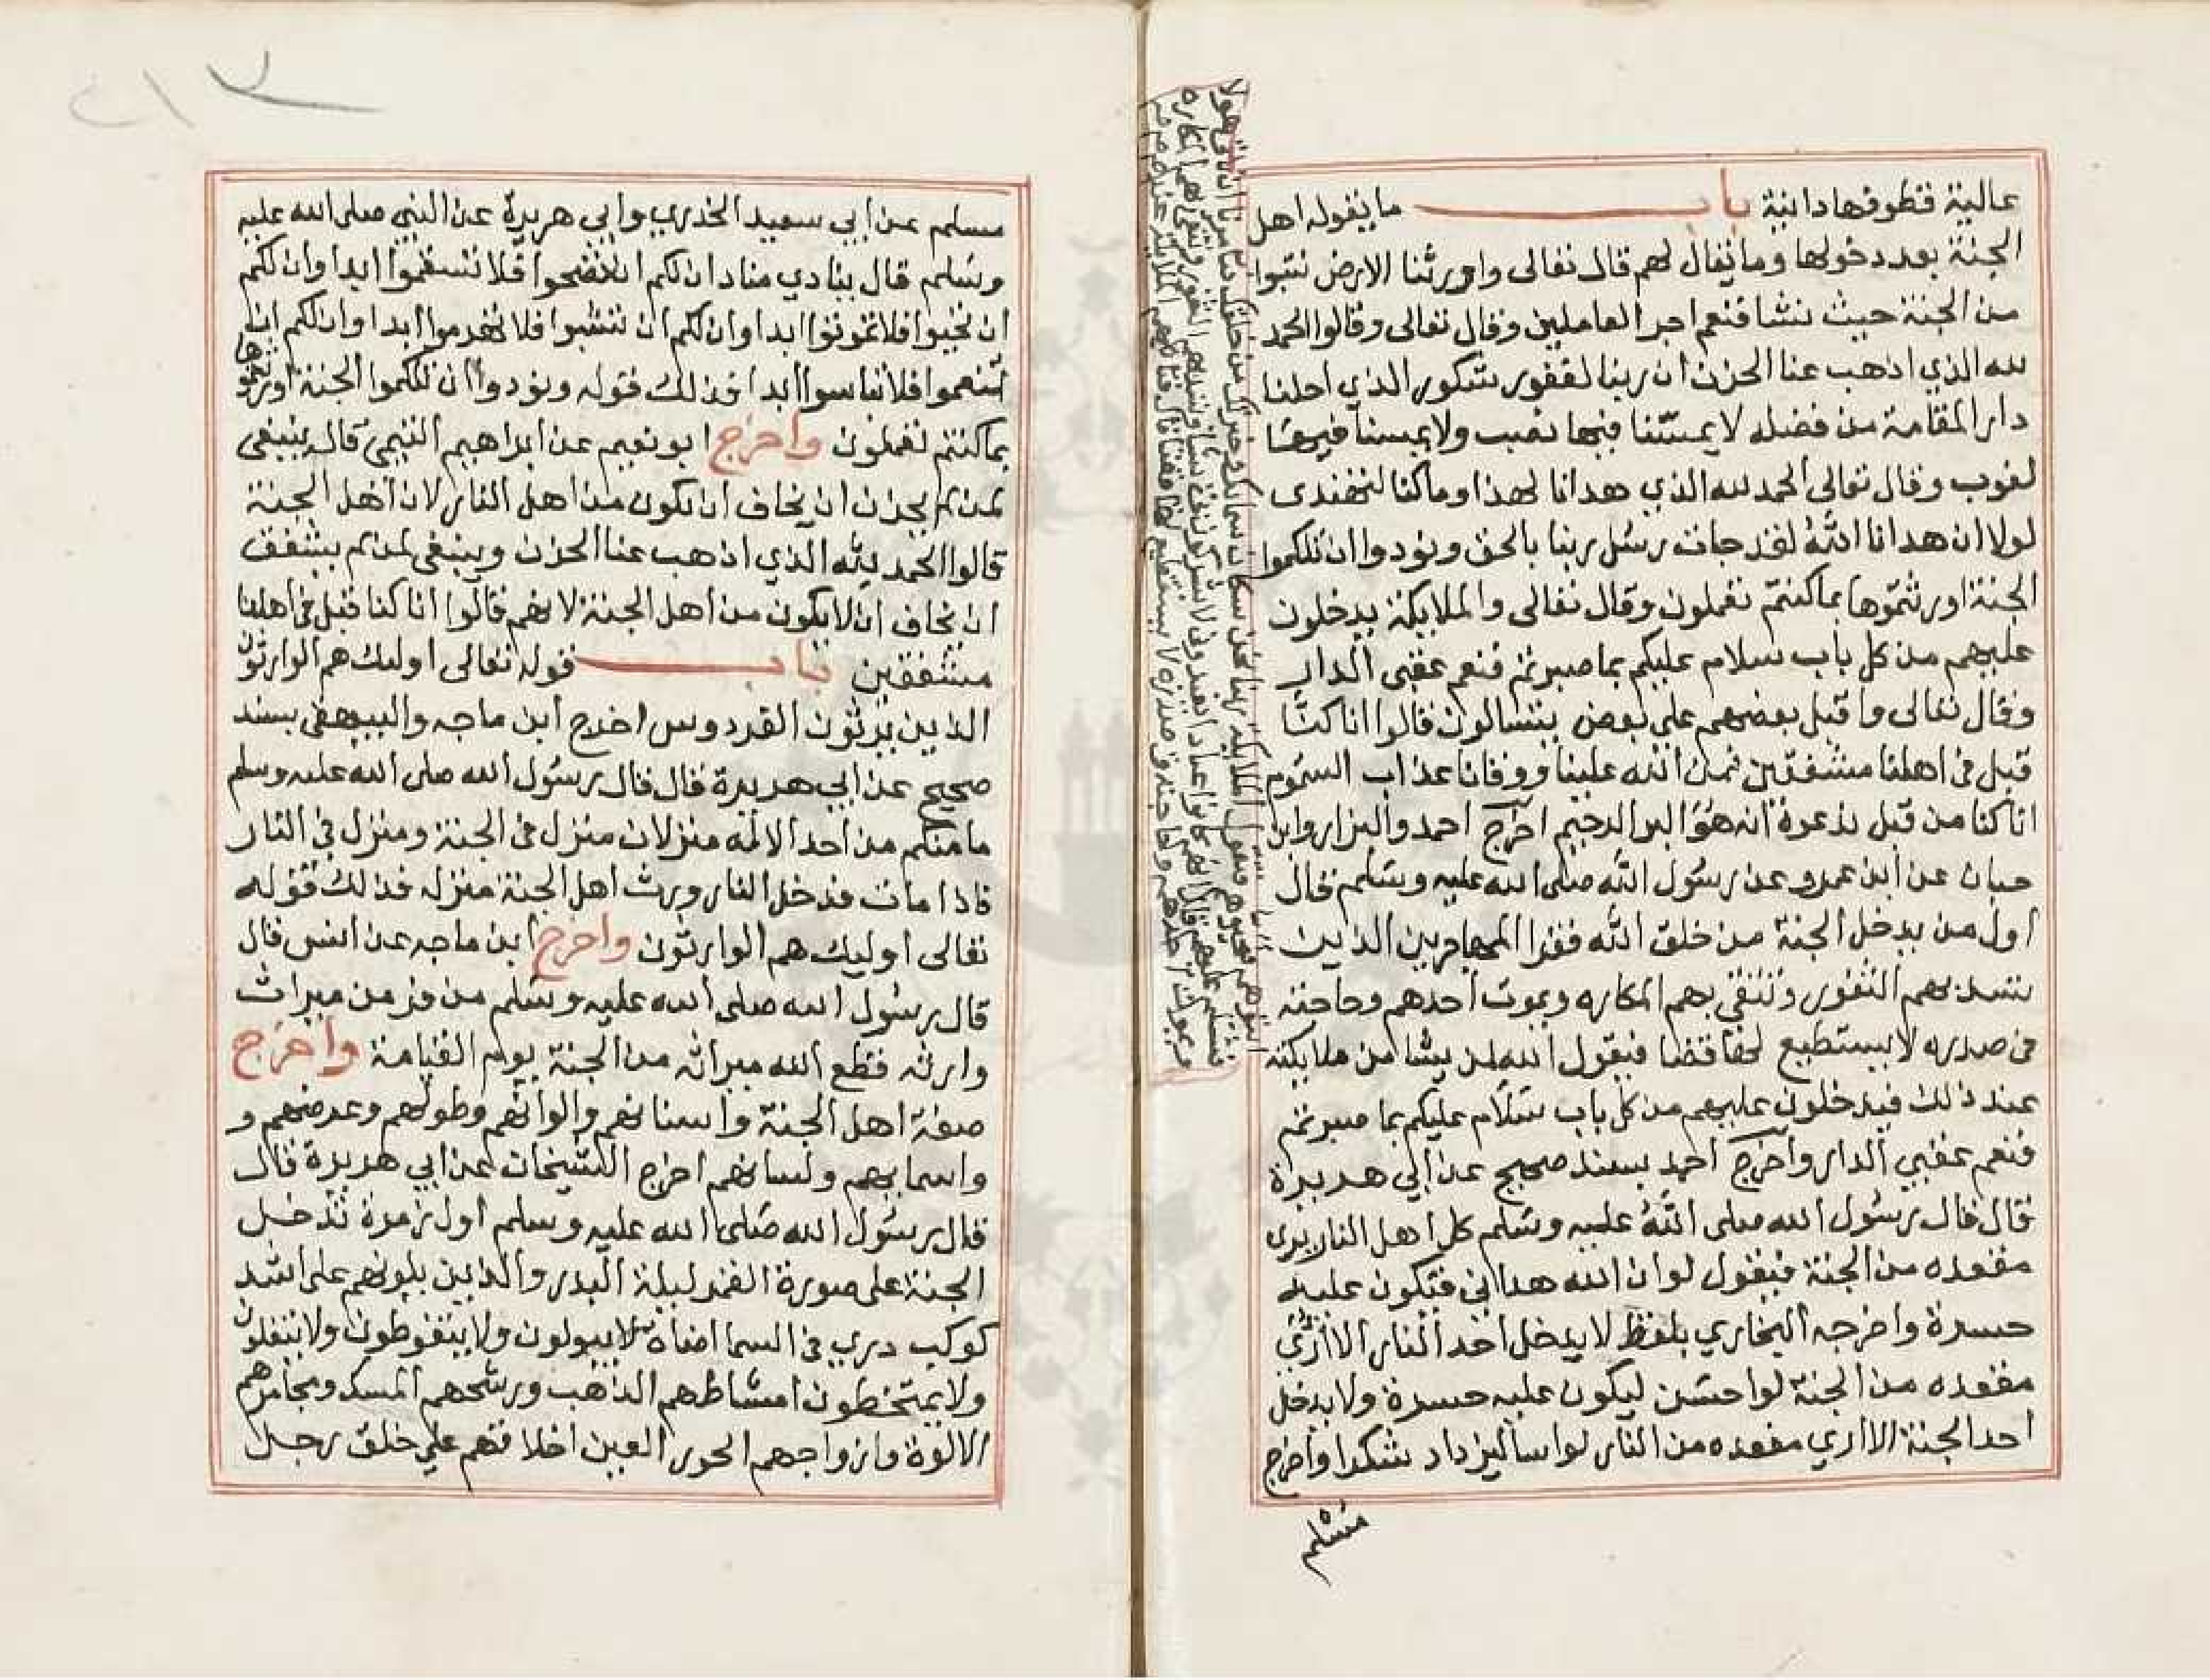 عالية قطوفها دانية باب ما يقوله اهل
الجنة بعد دخولها وما يقال لهم قال تعالى واورثنا الارض نتبوا
من الجنة حيث نشا فنعم اجر العاملين وقال تعالى وقالوا الحمد
لله الذي اذهب عنا الحزن ان ربنا لغفور شكور الذي احلنا
دار المقامة من فضله لا يمسّنا فيها نصب ولا يمسنا فيها
لغوب وقال تعالى الحمد لله الذي هدانا لهذا وما كنا لنهتدى
لولا ان هدانا اللهُ لقد جات رسُل ربنا بالحق ونودوا ان تلكموا
الجنة اورثتموها بما كنتم تعملون وقال تعالى والملايكة يدخلون
عليهم من كل باب سلام عليكم بما صبرتم فنعم عقبى الدار
وقال تعالى واقبل بعضهم على بعض يتسالون قالوا انا كنَّا
قبل فى اهلنا مشفقين فمن الله علينا ووقانا عذاب السموم
انا كنا من قبل ندعوه انه هوَ البر الرحيم اخرج احمد والبزار وابن
حبان عن ابن عمرو عن رسُول الله صلى الله عليه وسَلم قال
اول من يدخل الجنة من خلق الله فقرا المهاجرين الذين
تسد بهم الثغور وتتقى بهم المكاره ويموت احدهم وحاجته
فى صدره لا يستطيع لها قضا فيقول الله لمن يشا من ملايكته
عند ذلك فيدخلون عليهم من كل باب سَلام عليكم بما صبرتم
فنعم عقبي الدار واخرج احمد بسند صحيح عن ابي هريرة
قال قال رسُول الله صلى اللهُ عليه وسَلم كل اهل النار يرى
مقعده من الجنة فيقول لو ان الله هداني فتكون عليه
حسرة واخرجه البخاري بلفظ لا يدخل احد النار الا اُرِّي
مقعده من الجنة لو احسَن ليكون عليه حسرة ولا يدخل
احد الجنة الا اري مقعده من النار لو اسا ليزداد شكرا واخرج
مسْلم
مسلم عن ابي سعيد الخدري وابي هريرة عن النبي صلى الله عليه
وسَلم قال ينادي مناد ان لكم ان تصحوا فلا تسقموا ابدا وان لكم
ان تحيوا فلا تموتوا ابدا وان لكم ان تشبوا فلا تهرموا ابدا وان لكم ان
تنعموا فلا تباسوا ابدا فذلك قوله ونودوا ان تلكموا الجنة اورثتموها
بما كنتم تعملون واخرج ابو نعيم عن ابراهيم التيمي قال ينبغى
لمن لم يحزن ان يخاف ان يكون من اهل النار لان اهل الجنة
قالوا الحمد لله الذي اذهب عنا الحزن وينبغى لمن لم يشفق
ان يخاف ان لا يكون من اهل الجنة لانهم قالوا انا كنا قبل فى اهلنا
مشفقين باب قوله تعالى اوليك هم الوارثون
الذين يرثون الفردوس اخرج ابن ماجه والبيهقى بسند
صحيح عن ابي هريرة قال قال رسُول الله صلى الله عليه وسلم
ما منكم من احد الا له منزلان منزل فى الجنة ومنزل فى النار
فاذا مات فدخل النار ورث اهل الجنة منزله فذلك قوله
تعالى اوليك هم الوارثون واخرج ابن ماجه عن انس قال
قال رسُول الله صلى الله عليه وسَلم من فر من ميراث
وارثه قطع الله ميراثه من الجنة يوم القيامة واخرج
صفة اهل الجنة واسنانهم والوانهم وطولهم وعرضهم و
واسمايهم ولسانهم اخرج الشيخان عن ابي هريرة قال
قال رسُول الله صَلى الله عليه وسلم اول زمرة تدخل
الجنة على صورة القمر ليلة البدر والذين يلونهم على اشد
كوكب دري فى السما اضاة لا يبولون ولا يتغوطون ولا يتفلون
ولا يمتخطون امشاطهم الذهب ورشحهم المسك ومجامرهم
الالوة وازواجهم الحور العين اخلاقهم على خلق رجل